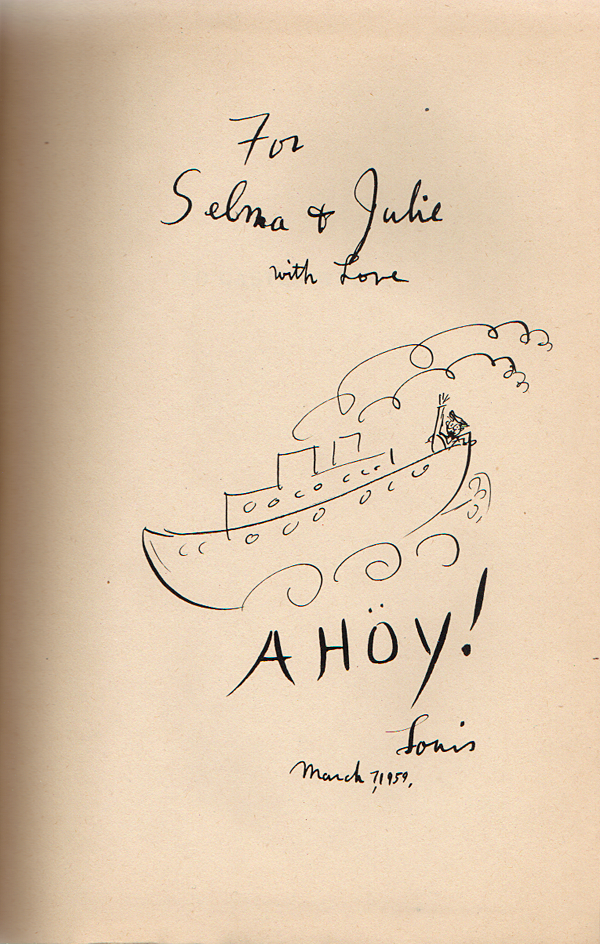 For
Selma & Julie
with Love
AHÖY!
Louis
March 7, 1959,